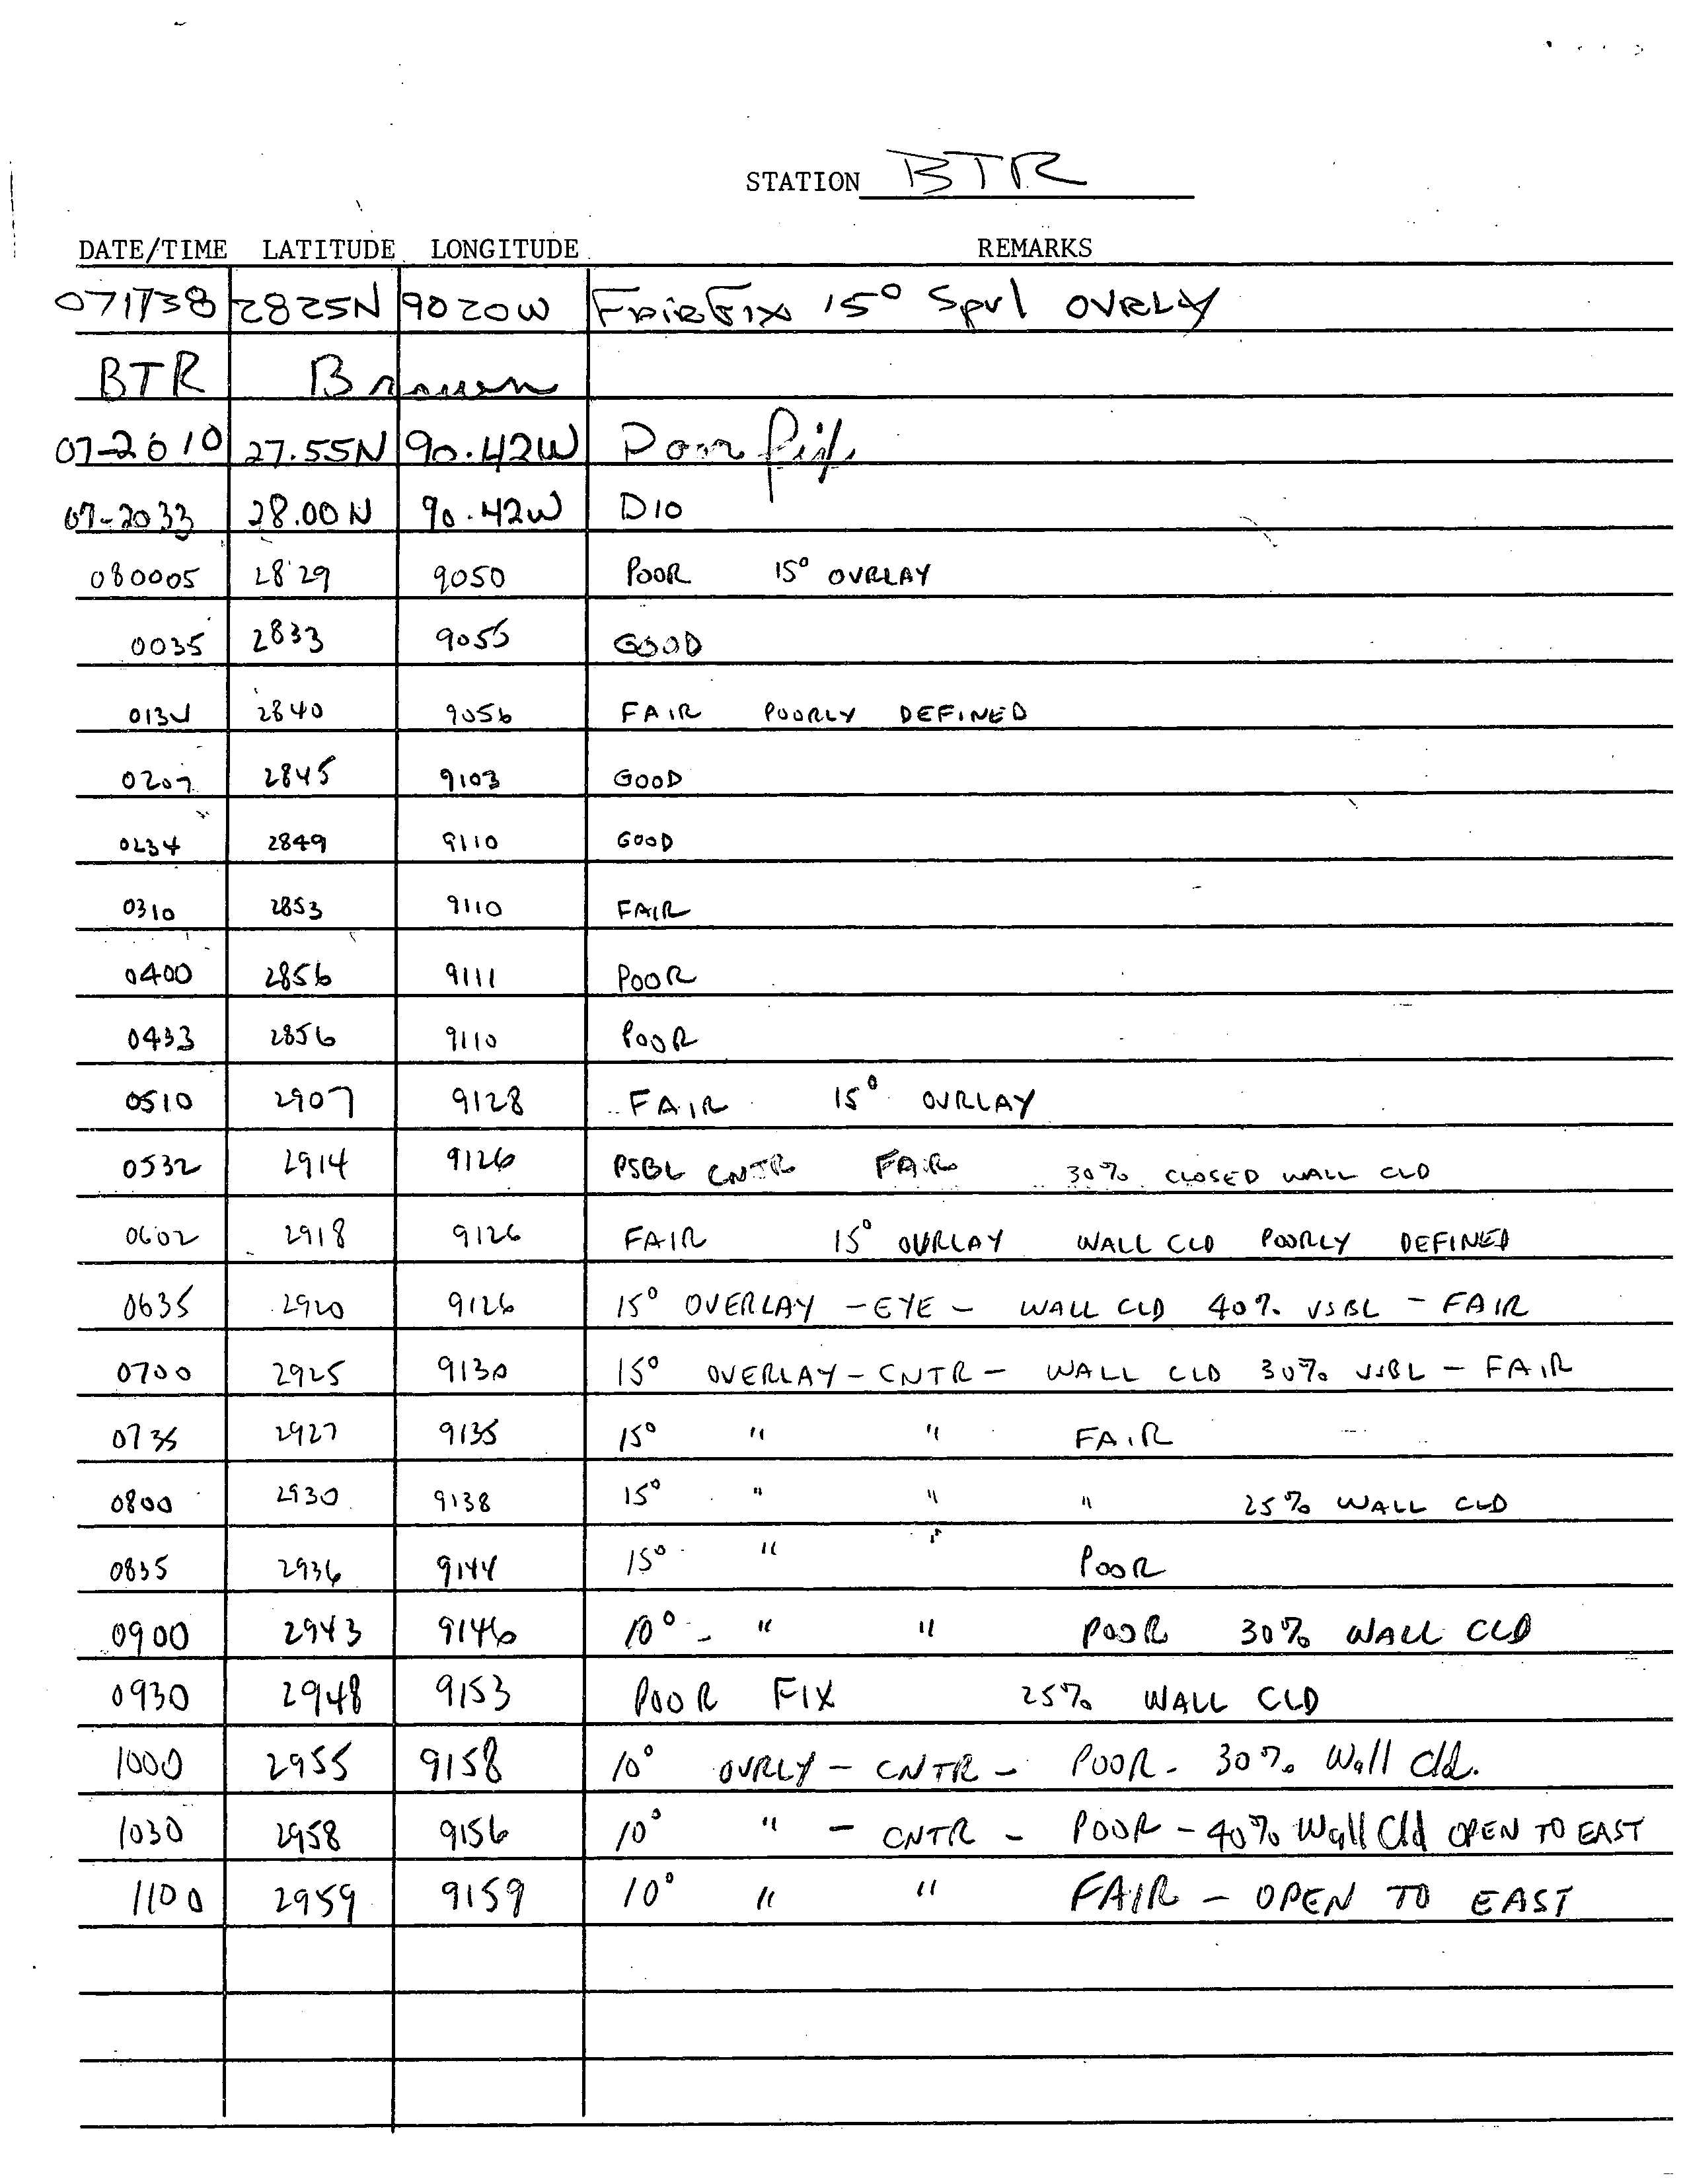 STATION BTR
DATE/TIME LATITUDE LONGITUDE REMARKS
071738 2825N 9020W FAIR FIX 15° Sprl OVRLY
BTR Brown
07-2010 27.55N 90.42W Poor fix
07-2033 28.00N 90.42W D10
080005 28 29 9050 POOR 15° OVRLAY
0035 2833 9055 GOOD
0134 2840 9056 FAIR POORLY DEFINED
0207 2845 9103 GOOD
0234 2849 9110 GOOD
0310 2853 9110 FAIR
0400 2856 9111 POOR
0433 2856 9110 POOR
0510 2907 9128 FAIR 15° OVRLAY
0532 2914 9126 PSBL CNTR FAIR 30% CLOSED WALL CLD
0602 2918 9126 FAIR 15° OVRLAY WALL CLD POORLY DEFINED
0635 2920 9126 15° OVERLAY - EYE - WALL CLD 40% VSBL - FAIR
0700 2925 9130 15° OVERLAY - CNTR - WALL CLD 30% VSBL - FAIR
0735 2927 9135 15° " " FAIR
0800 2930 9138 15° " " " 25% WALL CLD
0835 2936 9144 15° " " POOR
0900 2943 9146 10° - " " POOR 30% WALL CLD
0930 2948 9153 POOR FIX 25% WALL CLD
1000 2955 9158 10° OVRLY - CNTR - POOR - 30% Wall Cld.
1030 2958 9156 10° " - CNTR - POOR - 40% Wall Cld OPEN TO EAST
1100 2959 9159 10° " " FAIR - OPEN TO EAST